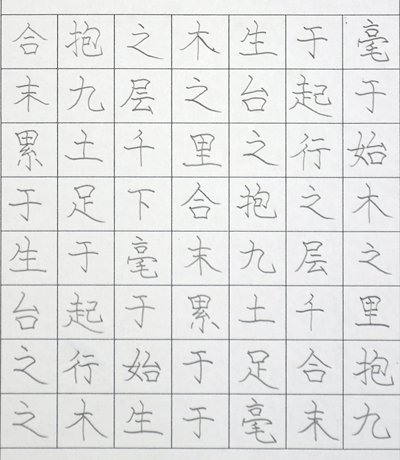 合抱之木生于毫
末九层之台起于
累土千里之行始
于足下合抱之木
生于毫末九层之
台起于累土千里
之行始于足合抱
之木生于毫末九